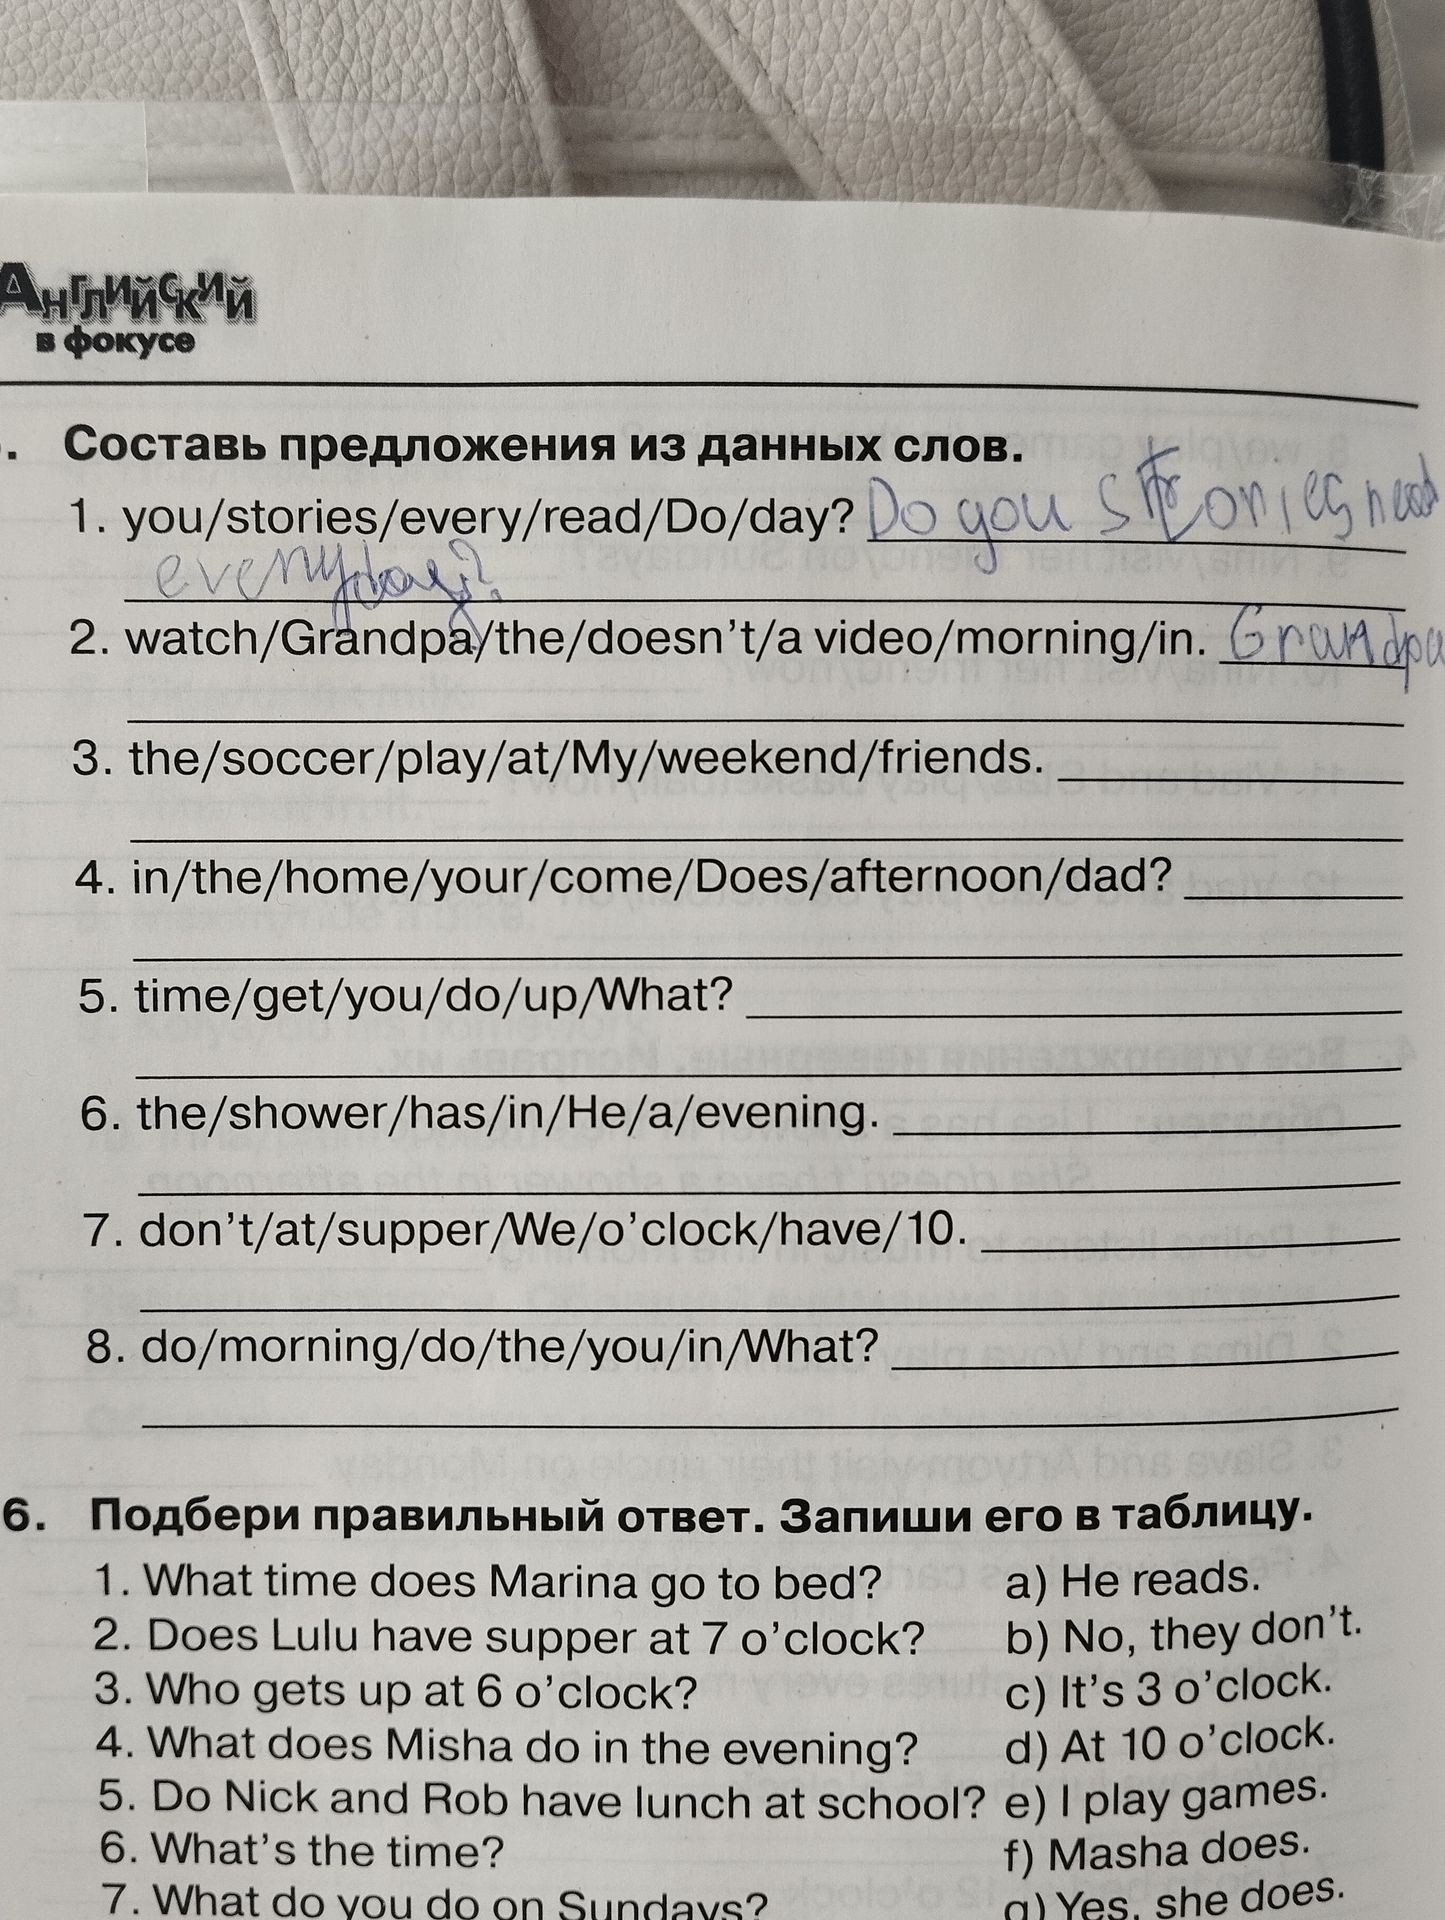 Английский
в фокусе
. Составь предложения из данных слов.
1. you/stories/every/read/Do/day? Do you stories read
everyday?
2. watch/Grandpa/the/doesn't/a video/morning/in. Grandpa
3. the/soccer/play/at/My/weekend/friends.
4. in/the/home/your/come/Does/afternoon/dad?
5. time/get/you/do/up/What?
6. the/shower/has/in/He/a/evening.
7. don't/at/supper/We/o'clock/have/10.
8. do/morning/do/the/you/in/What?
6. Подбери правильный ответ. Запиши его в таблицу.
1. What time does Marina go to bed? a) He reads.
2. Does Lulu have supper at 7 o'clock? b) No, they don't.
3. Who gets up at 6 o'clock? c) It's 3 o'clock.
4. What does Misha do in the evening? d) At 10 o'clock.
5. Do Nick and Rob have lunch at school? e) I play games.
6. What's the time? f) Masha does.
7. What do you do on Sundays? g) Yes, she does.